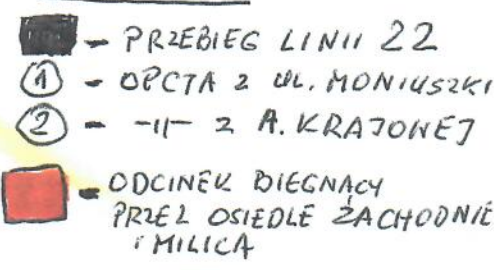 - PRZEBIEG LINII 22
① - OPCJA Z UL. MONIUSZKI
② - -11- Z A. KRAJOWEJ
- ODCINEK BIEGNĄCY
PRZEZ OSIEDLE ZACHODNIE
I MILICA